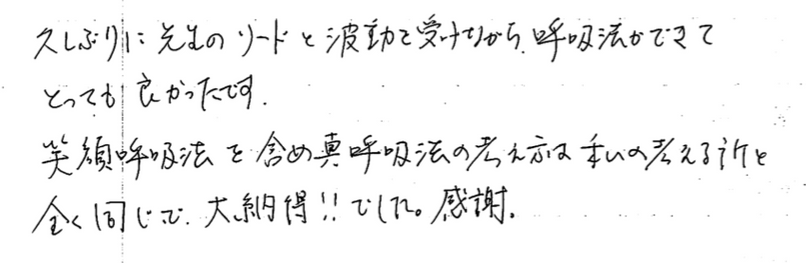 久しぶりに先生のリードと波動を受けながら、呼吸法ができて
とっても良かったです。
笑顔呼吸法を含め真呼吸法の考え方は私の考える所と
全く同じで、大納得!!でした。感謝。